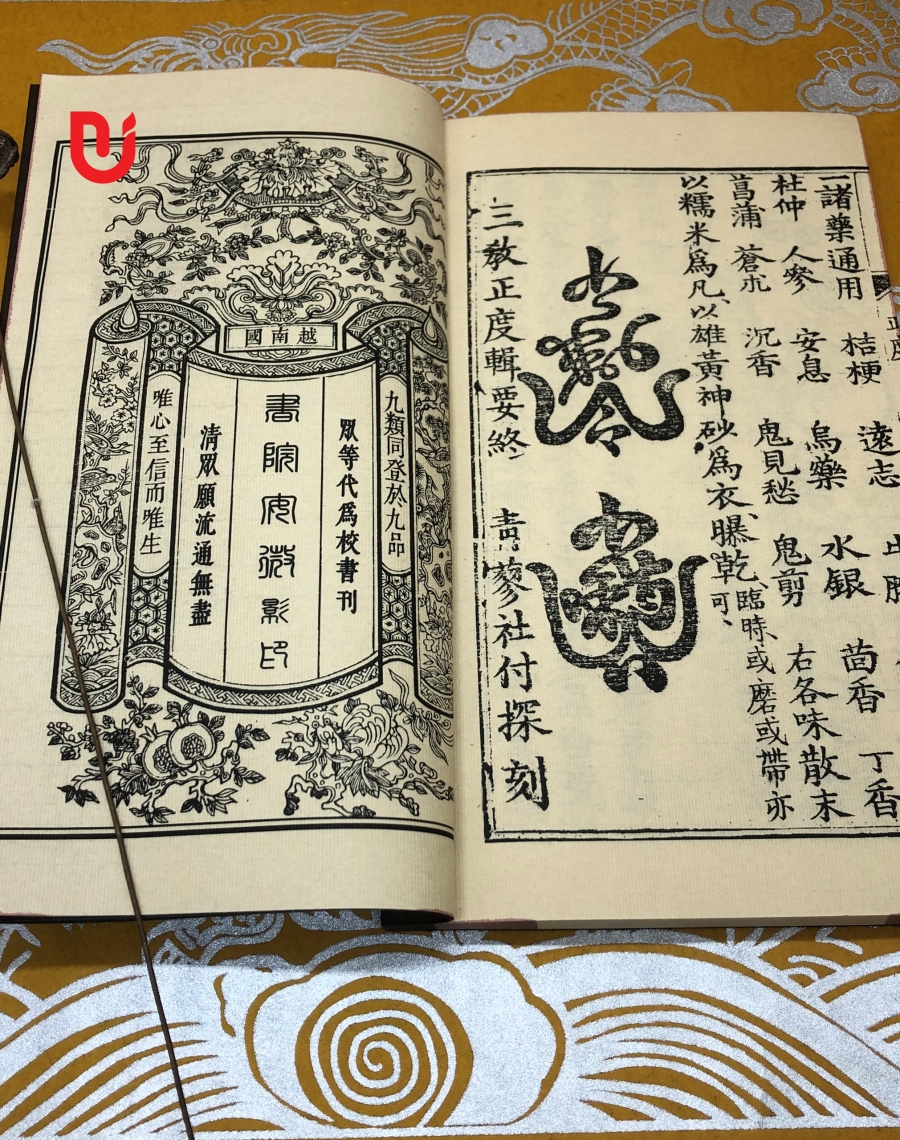 正度
一諸藥通用 桔梗 遠志
杜仲 人參 安息 烏藥 水銀 茴香 丁香
菖蒲 蒼朮 沉香 鬼見愁 鬼剪 右各味散末
以糯米爲凡、以雄黃神砂爲衣、曝乾、臨時或磨或帶亦可、
三教正度輯要終 青蓼社付探刻
越南國
九類同登於九品
眾等代爲校書刊
書院安微影印
清眾願流通無盡
唯心至信而唯生